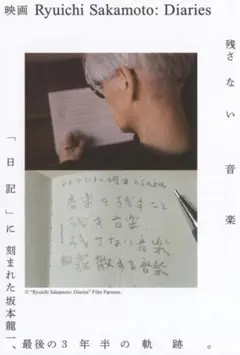 映画 Ryuichi Sakamoto: Diaries
残さない音楽
音楽を残すこと
残す音楽
残さない音楽
散する音楽
© "Ryuichi Sakamoto: Diaries" Film Partners
「日記」に刻まれた坂本龍一、
最後の3年半の軌跡。